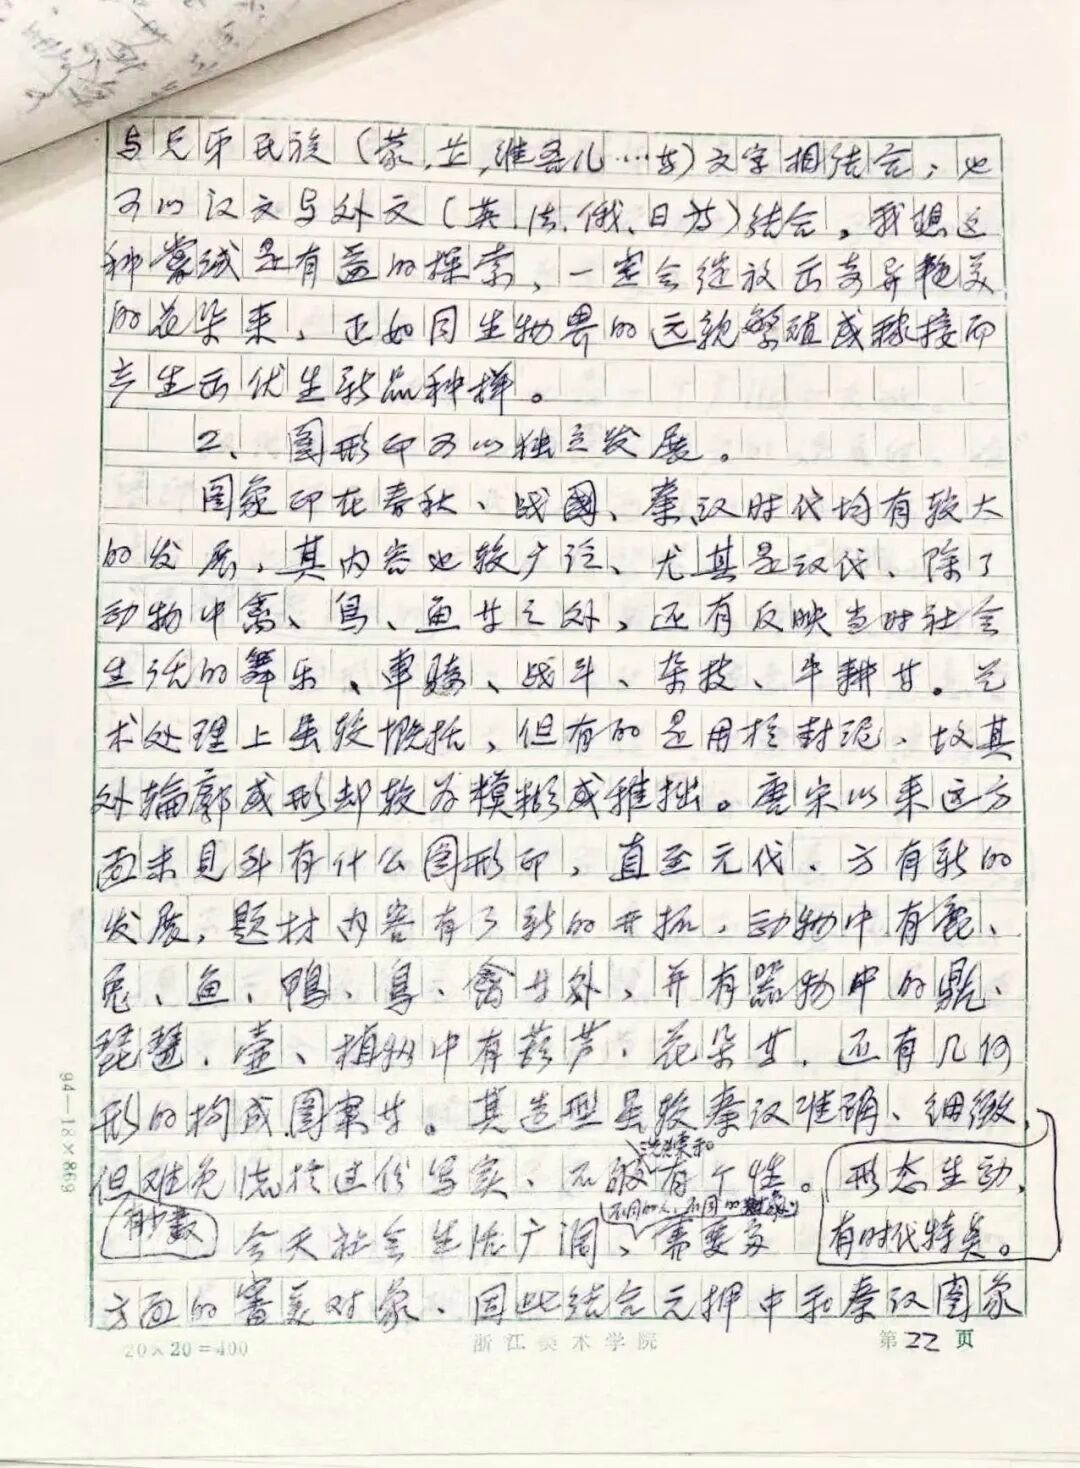 与兄弟民族（蒙、藏、维吾儿……等）文字相结合；也
可以汉文与外文（英、法、俄、日等）结合。我想这
种尝试是有益的探索，一定会绽放出奇异艳美
的花朵来，正如同生物界的远亲繁殖或稼接而
产生出优生新品种样。
2、图形印可以独立发展。
图象印在春秋、战國、秦汉时代均有较大
的发展，其内容也较广泛、尤其是汉代、除了
动物中禽、鳥、鱼等之外，还有反映当时社会
生活的舞乐、車骑、战斗、杂技、牛耕等。艺
术处理上虽较概括，但有的是用于封泥、故其
外轮廓或形却较为模糊或稚拙。唐宋以来这方
面未见到有什么图形印，直至元代、方有新的
发展，题材内容有了新的开拓，动物中有鹿、
兔、鱼、鴨、鳥、禽等外，并有器物中的鼎、
琵琶、壶、植物中有葫芦、花朵等，还有几何
形的构成图案等。其造型虽较秦汉准确、细微，
洗练和
但难免流于过份写实、不够有个性。 形态生动，
有少数 不同的人，不同的对象
今天社会生活广阔、需要多 有时代特美。
方面的審美对象、因此结合元押中和秦汉图象
94—18×869
20×20=400
浙江美术学院
第22页